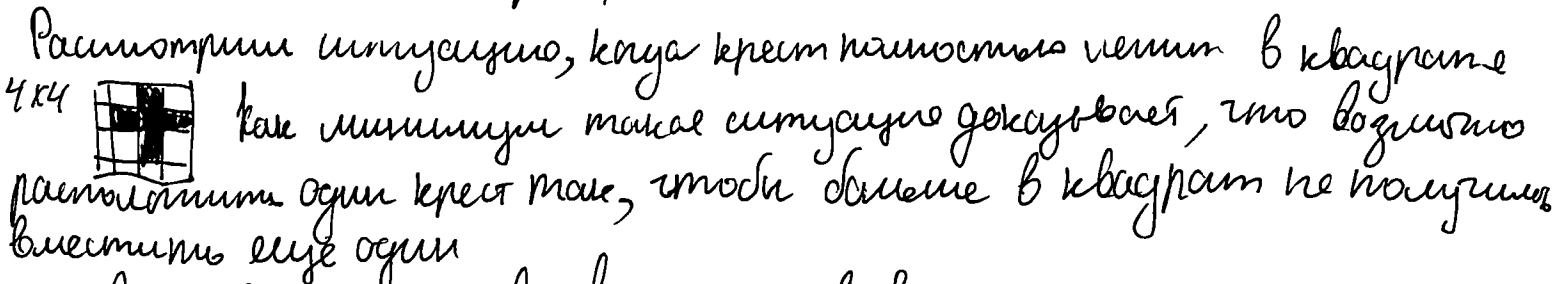 Рассмотрим ситуацию, когда крест полностью лежит в квадрате
4х4 Как минимум такая ситуация доказывает, что возможно
расположить один крест так, чтобы больше в квадрат не получилось
вместить ещё один